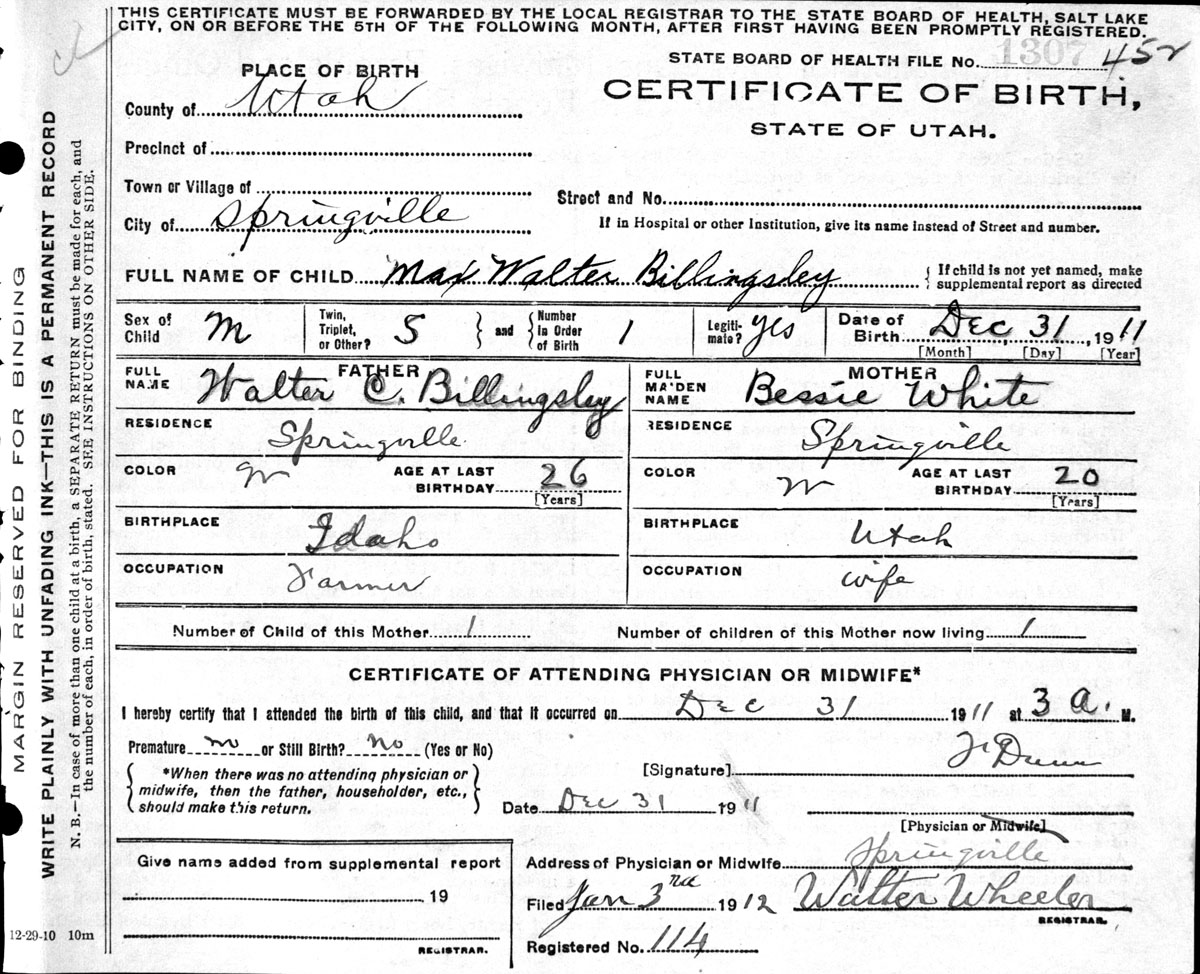 THIS CERTIFICATE MUST BE FORWARDED BY THE LOCAL REGISTRAR TO THE STATE BOARD OF HEALTH, SALT LAKE
CITY, ON OR BEFORE THE 5TH OF THE FOLLOWING MONTH, AFTER FIRST HAVING BEEN PROMPTLY REGISTERED.
STATE BOARD OF HEALTH FILE No. 1307 452
PLACE OF BIRTH
CERTIFICATE OF BIRTH,
County of Utah
STATE OF UTAH.
Precinct of
Town or Village of
Street and No.
City of Springville
If in Hospital or other Institution, give its name instead of Street and number.
FULL NAME OF CHILD Max Walter Billingsley { If child is not yet named, make
supplemental report as directed
Sex of Child M
Twin, Triplet, or Other? S } and { Number in Order of Birth 1
Legiti- mate? yes
Date of Birth Dec 31, 1911
[Month] [Day] [Year]
FATHER
FULL NAME Walter C. Billingsley
MOTHER
FULL MAIDEN NAME Bessie White
RESIDENCE Springville
RESIDENCE Springville
COLOR W AGE AT LAST BIRTHDAY 26 [Years]
COLOR W AGE AT LAST BIRTHDAY 20 [Years]
BIRTHPLACE Idaho
BIRTHPLACE Utah
OCCUPATION Farmer
OCCUPATION wife
Number of Child of this Mother 1 Number of children of this Mother now living 1
CERTIFICATE OF ATTENDING PHYSICIAN OR MIDWIFE*
I hereby certify that I attended the birth of this child, and that it occurred on Dec 31 1911 at 3 a. M.
Premature no or Still Birth? No (Yes or No)
{ *When there was no attending physician or
midwife, then the father, householder, etc.,
should make this return. }
[Signature] Dunn
Date Dec 31 1911
[Physician or Midwife]
Give name added from supplemental report
19
REGISTRAR.
Address of Physician or Midwife Springville
Filed Jan 3rd 1912 Walter Wheeler
REGISTRAR.
Registered No. 114
12-29-10 10m
MARGIN RESERVED FOR BINDING
WRITE PLAINLY WITH UNFADING INK—THIS IS A PERMANENT RECORD
N. B.—In case of more than one child at a birth, a SEPARATE RETURN must be made for each, and
the number of each, in order of birth, stated. SEE INSTRUCTIONS ON OTHER SIDE.